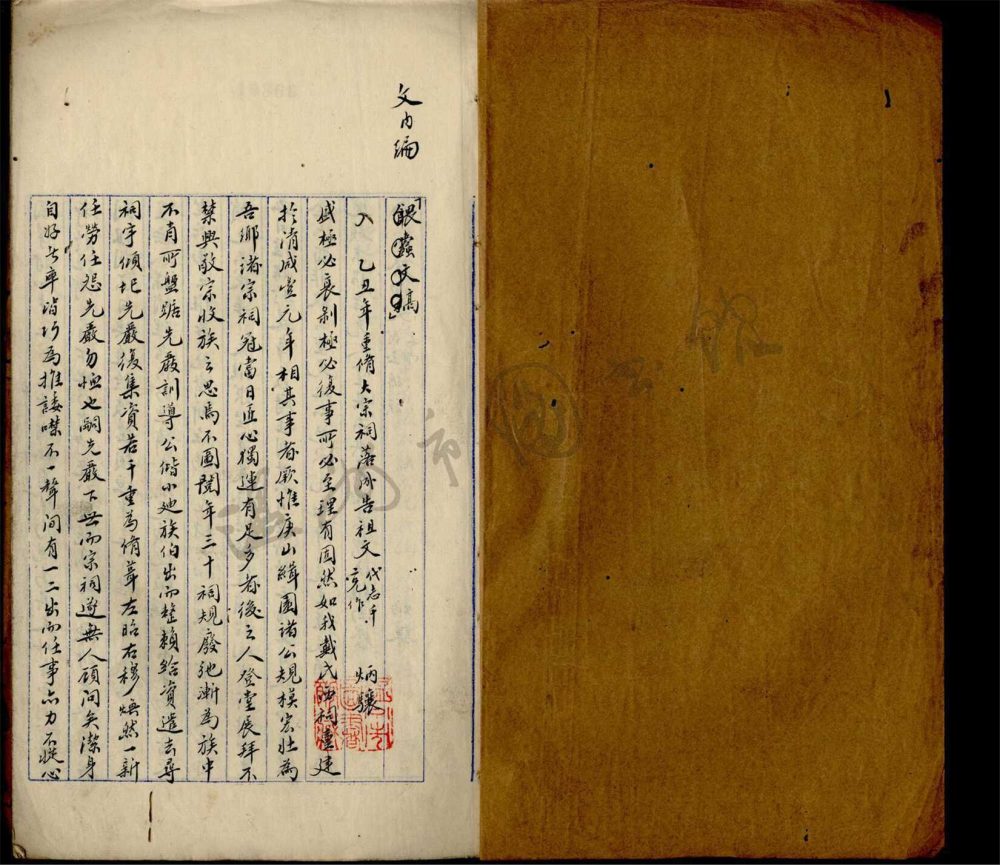 文內編
銀蟾文稿
入 乙丑年重脩大宗祠落成告祖文 代志千
克作 炳驤
盛極必衰剝極必復事所必至理有固然如我戴氏西祠重建
於清咸豐元年相其事者厥惟庚山緝園諸公規模宏壯為
吾鄉諸宗祠冠當日匠心獨運有足多者後之人登堂展拜不
禁興敬宗收族之思焉不圖閱年三十祠規廢弛漸為族中
不肖所盤踞先嚴訓導公偕小 族伯出而整頓給資遣去尋
祠宇傾圮先嚴復集資若干重為脩葺左昭右穆煥然一新
任勞任怨先嚴勿恤也嗣先嚴下世而宗祠遂無人顧問矣潔身
自好者率皆巧為推諉噤不一聲間有一二出而任事亦力不從心
市圖書館